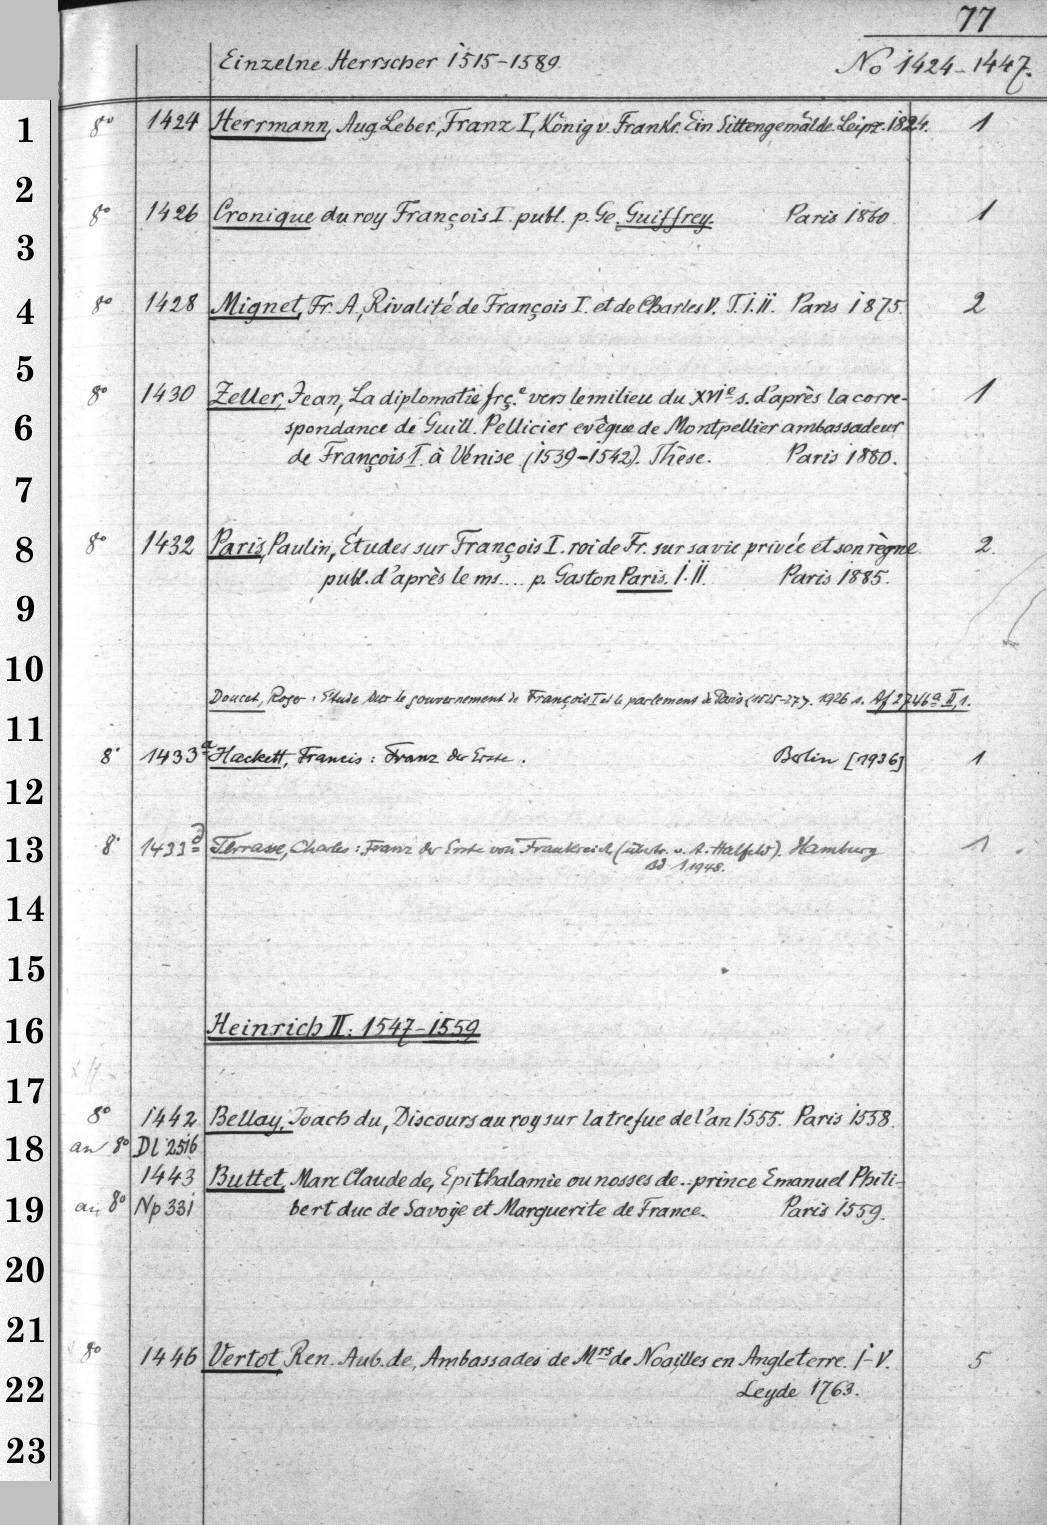 77
Einzelne Herrscher 1515-1589
No 1424-1447.
1 8° 1424 Herrmann, Aug. Leber., Franz I, König v. Frankr. Ein Sittengemälde Leipz. 1824. 1
2
8° 1426 Cronique du roy François I. publ. p. Ge. Guiffrey. Paris 1860 1
3
4 8° 1428 Mignet, Fr. A., Rivalité de François I. et de Charles V. T. I. II. Paris 1875. 2
5
8° 1430 Zeller, Jean, La diplomatie frç.e vers le milieu du XVIe s. d'après la corre-
6 spondance de Guill. Pellicier evêque de Montpellier ambassadeur 1
de François I. à Vénise (1539-1542). Thèse. Paris 1880.
7
8 8° 1432 Paris, Paulin, Études sur François I. roi de Fr. sur sa vie privée et son règne 2.
publ. d'après le ms.... p. Gaston Paris. I. II. Paris 1885.
9
10
Doucet, Roger: Etude sur le gouvernement de François I et le parlement de Paris (1525-27). 1926 s. Af 2746a II,1.
11
8° 1433a Hackett, Francis: Franz der Erste. Berlin [1936] 1
12
13 8° 1433d Terrasse, Charles: Franz der Erste von Frankreich (übstr. v. A. Halfeld). Hamburg 1
Bd 1. 1948.
14
15
16 Heinrich II: 1547-1559
17
8° 1442 Bellay, Joach du, Discours au roy sur la trefue de l'an 1555. Paris 1558.
18 an 8° Dl 2516
1443 Buttet, Marc Claude de, Epithalamie ou nosses de.. prince Emanuel Phili-
19 an 8° Np 331 bert duc de Savoije et Marguerite de France. Paris 1559.
20
21
8° 1446 Vertot, Ren. Aub. de, Ambassades de Mrs de Noailles en Angleterre. I-V. 5
22 Leyde 1763.
23